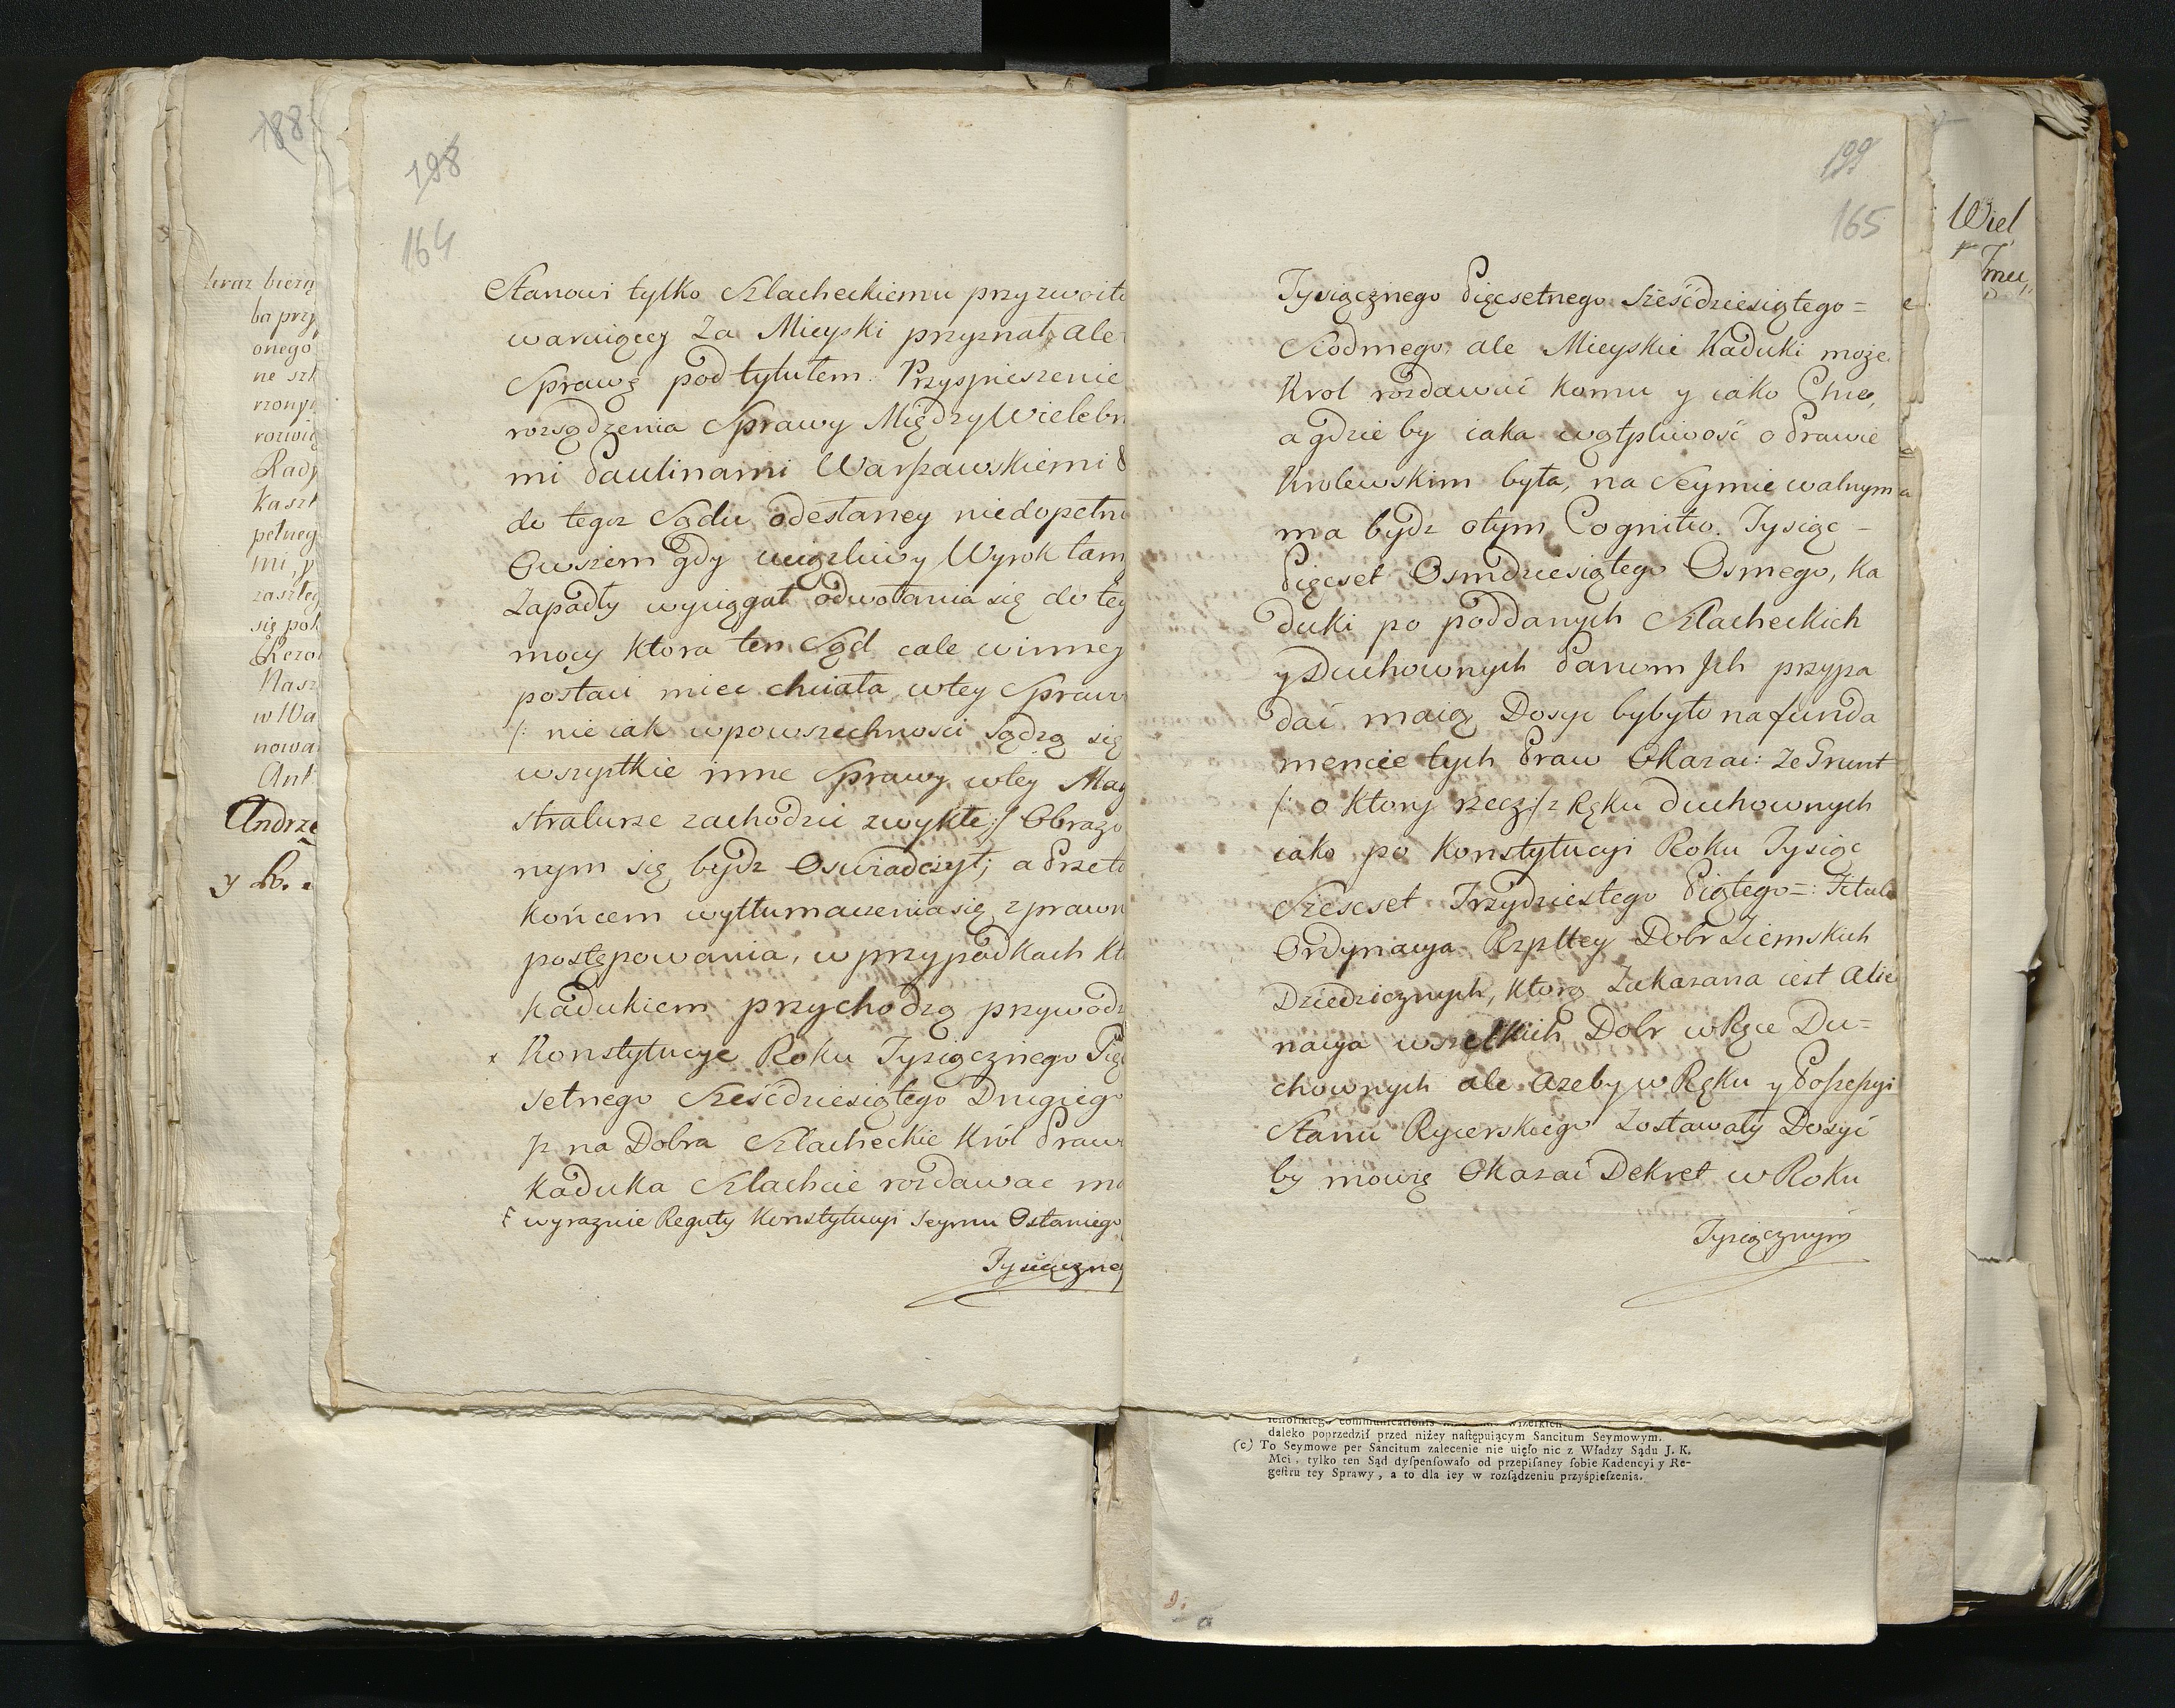 188
kraz bieżą
ba przy
onego
ne szl
rzony
Rady
Kaszt
pełneg
mi, y
zaszłey
się poł
Rezol
Nasz
w Wa
nowa
Ant
Andrze
y
198
164
Stanowi tylko Szlacheckiemu przyzwoite
waruiący za Mieyski przyznał, ale
Sprawę pod tytułem: Przyspieszenie
rozsądzenia Sprawy Między Wielebn
mi Paulinami Warszawskiemi
do tegoż Sądu odesłaney niedopełni
Owszem gdy uiążliwy Wyrok tam
zapadły wyciągał odwołania się do tey
mocy ktora ten Sąd cale w inney
postaci mieć chciała, w tey Spraw
/: nie iak w powszechności sądzą się
wszystkie inne Sprawy w tey Mag
straturze zachodzić zwykłe :/ Obrazo
nym się bydz Oświadczył; a Przeto
końcem wytłumaczenia się z prawn
postępowania, w przypadkach kt
Kadukiem przychodzą przywodz
x Konstytucye Roku Tysiącznego Pięć
setnego Sześćdziesiątego Drugiego
iż na Dobra Szlacheckie Król Praw
Kaduka Szlachcie rozdawac mo
wyraznie Reguły Konstytucyi Seymu Ostaniego
Tysiączneg
199
165
Tysiącznego Pięcsetnego Sześćdziesiątego =
Siodmego, ale Mieyskie Kaduki może
Krol rozdawać komu y iako Chce,
a gdzie by iaka wątpliwość o Prawie
Krolewskim była, na Seymie walnym
ma bydz o tym Cognitio. Tysiąc -
Pięcset Osmdziesiątego Osmego, Ka
duki po poddanych Szlacheckich
y Duchownych Panom Ich przypa
dać maią Dosyc by było na funda
mencie tych Praw Okazać: Że Grunt
/: o ktory rzecz :/ z Ręku duchownych
iako po Konstytucyi Roku Tysiąc
Szescset Trzydziestego Piątego =: Titulo
Ordynacya Rzpltey Dobr Ziemskich
Dziedzicznych, ktorą Zakazana iest Alie
nacya wszelkich Dobr w Ręce Du=
chownych ale azeby w Ręku y Possessyi
Stanu Rycerskiego zostawały Dosyć
by mowię Okazać Dekret w Roku
Tysiącznym
Wiel
daleko poprzedził przed niżey naſtępuiącym Sancitum Seymowym.
(c) To Seymowe per Sancitum zalecenie nie uięło nic z Władzy Sądu J. K.
Mci, tylko ten Sąd dyſpenſowało od przepiſaney ſobie Kadencyi y Re-
geſtru tey Sprawy, a to dla iey w rozſądzeniu przyśpieſzenia.